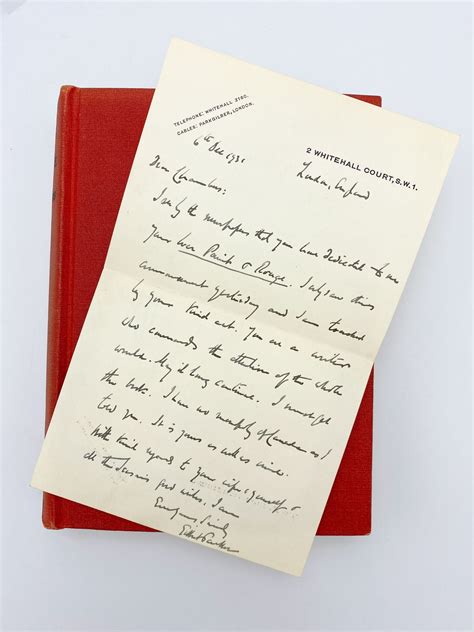 TELEPHONE: WHITEHALL 3160.
CABLES: PARKGILBER, LONDON.
2 WHITEHALL COURT, S.W.1.
6th Dec 1931
London, England
Dear Chambers:
I see by the newspapers that you have dedicated to me
your book Paint & Rouge. I only saw this
announcement yesterday and I am touched
by your kind act. You are a writer
who commands the attention of the whole
world. May it long continue. I must get
the book. I have no monopoly of Canada as I
told you. It is yours as well as mine.
With kind regards to your wife & yourself &
all the Season's good wishes, I am
Ever yours, sincerely
Gilbert Parker